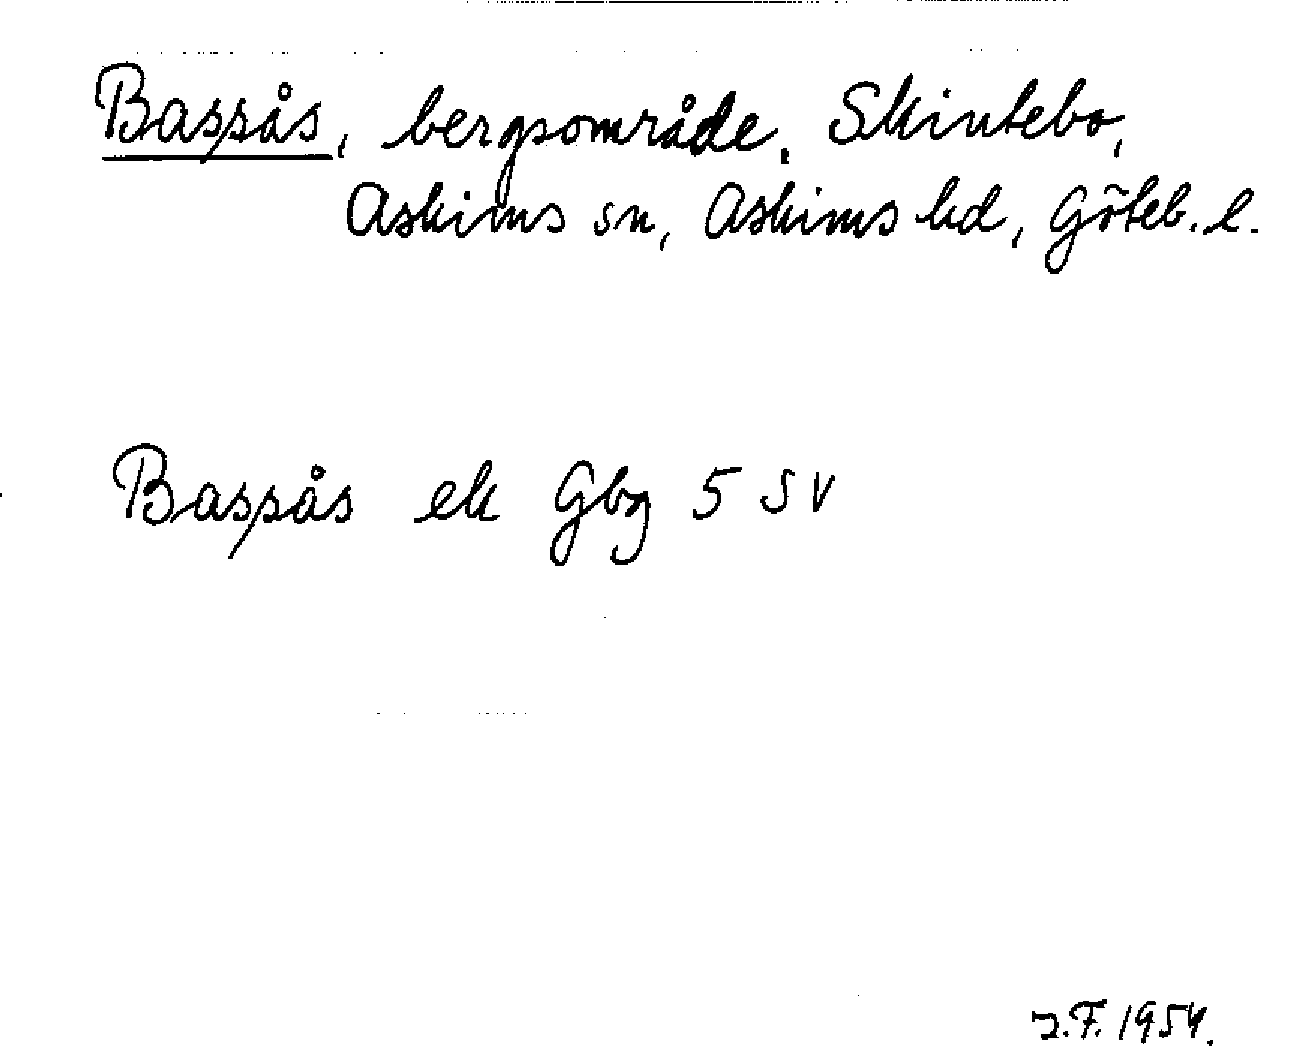 Bassås, bergsområde, Skintebo,
Askims sn, Askims hd, Göteb. l.
Bassås ek Gbg 5 SV
J.F. 1954.